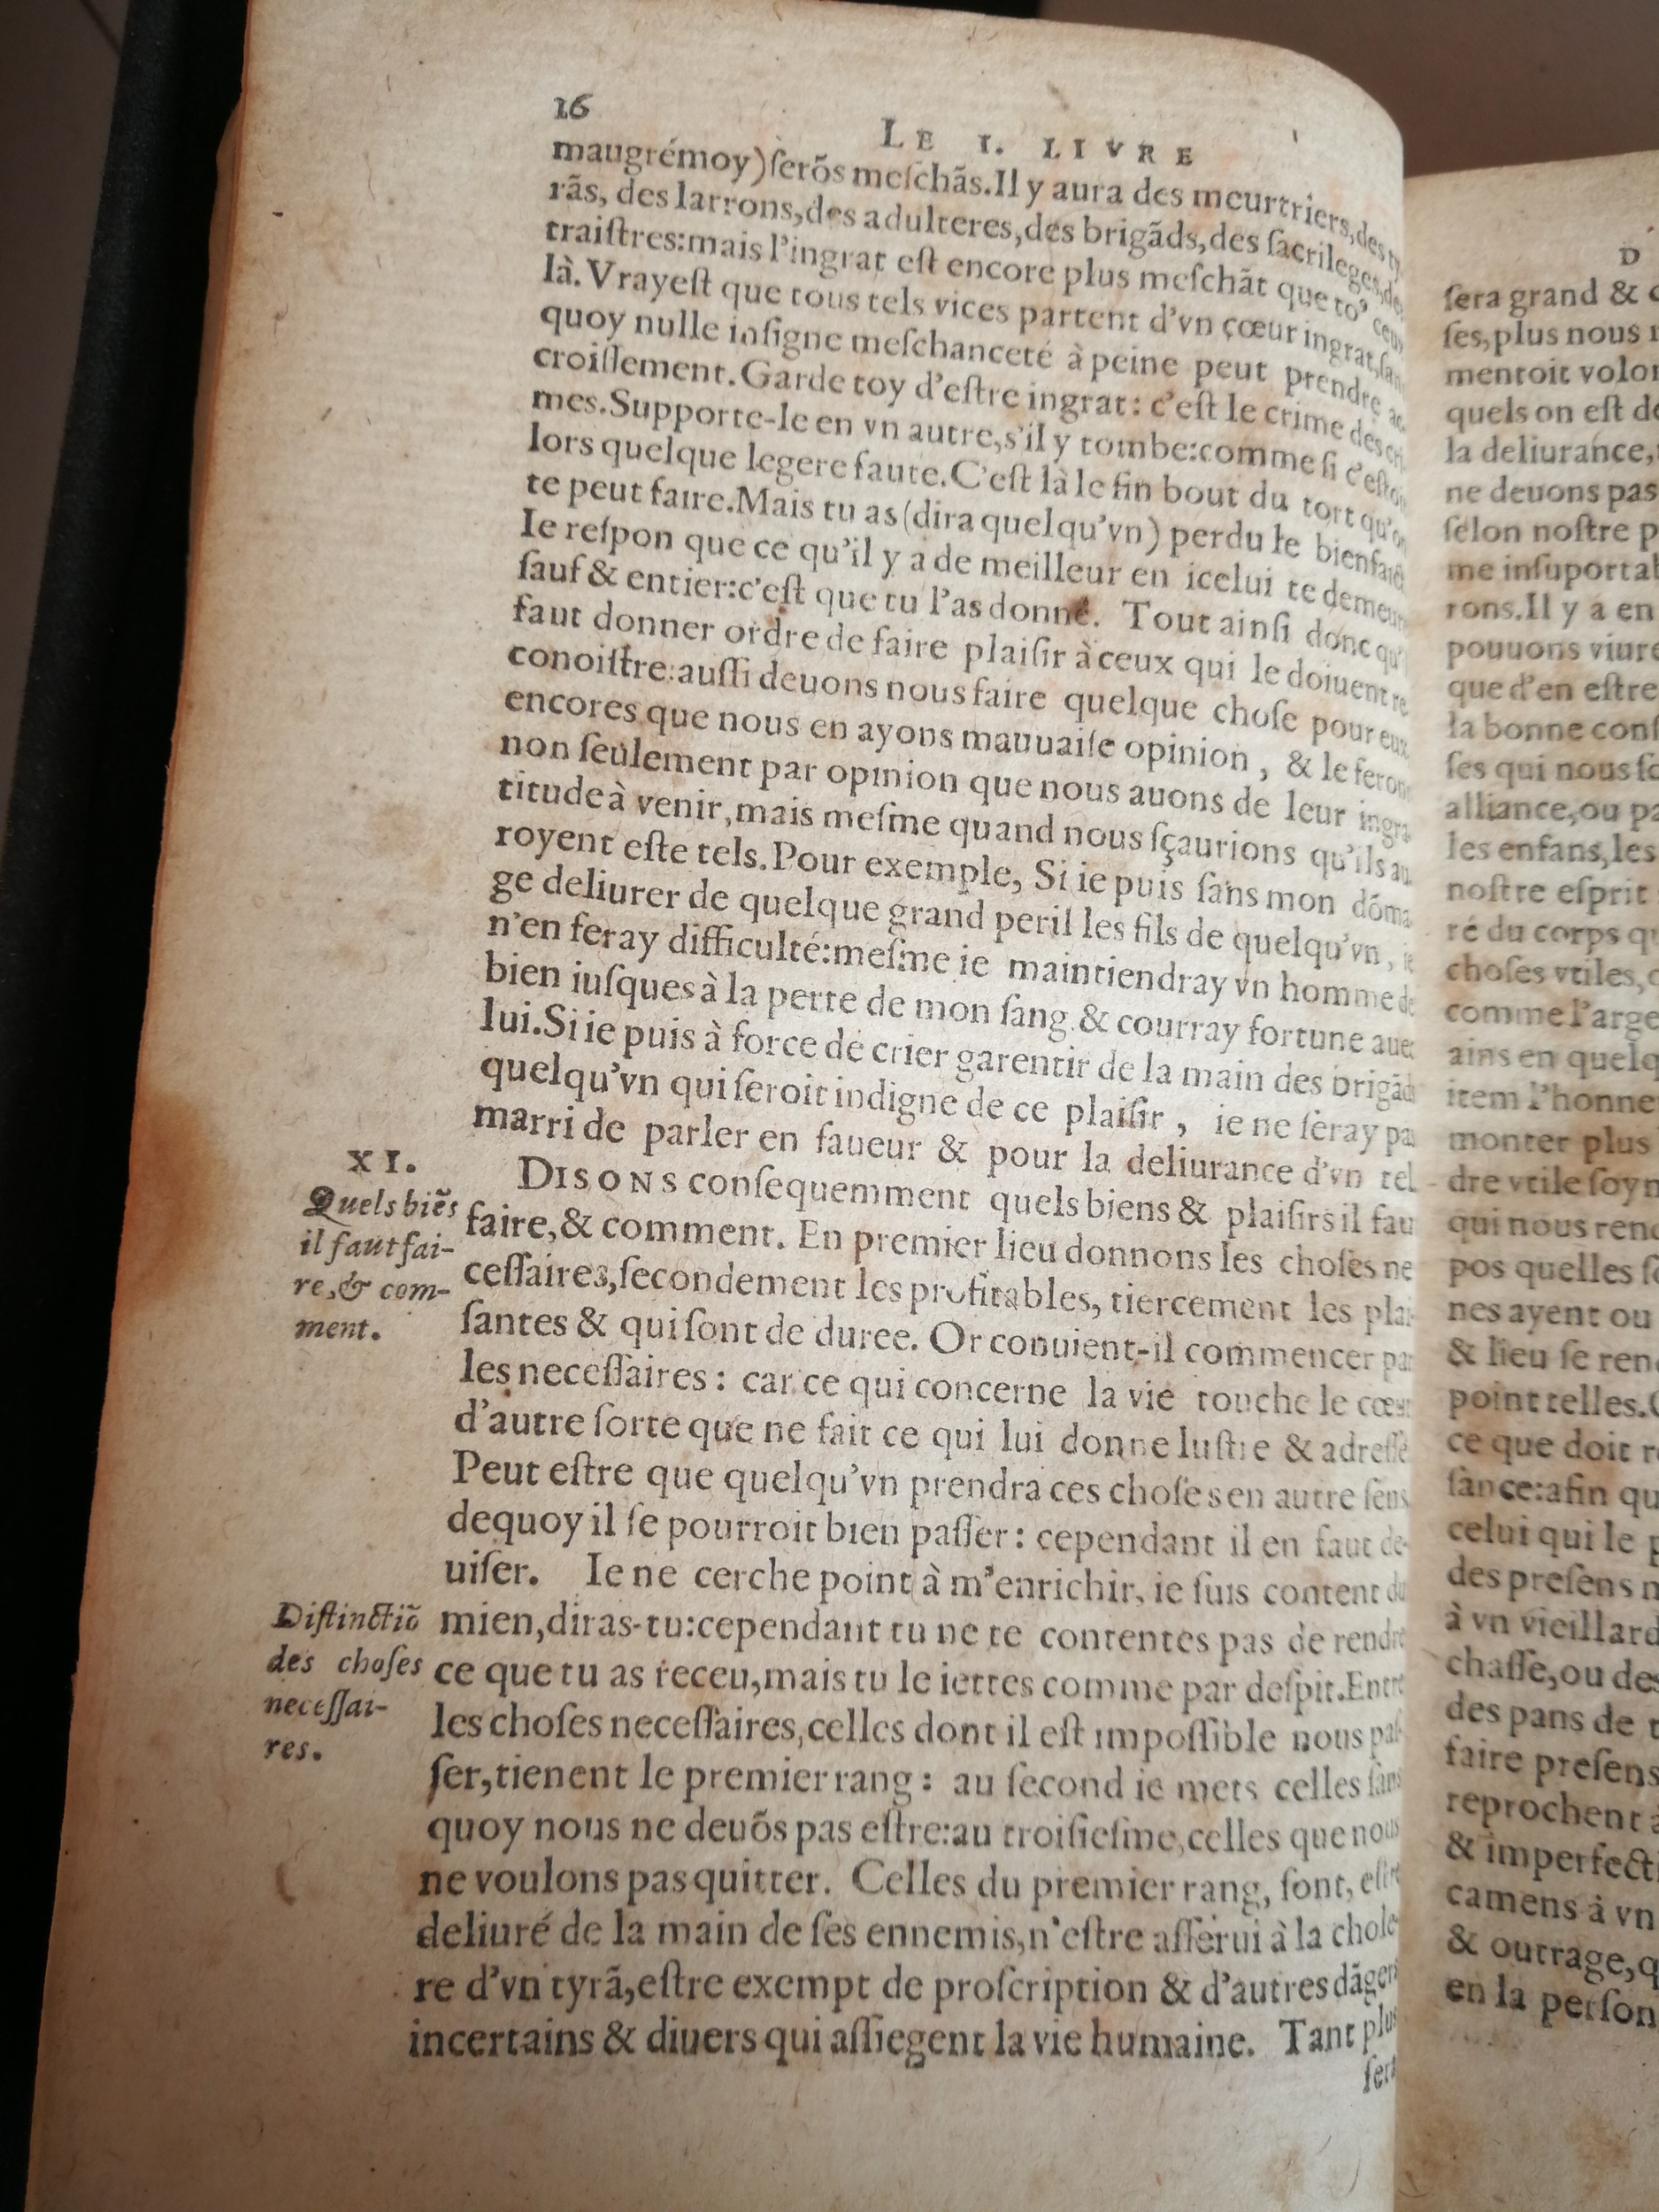 16
LE I. LIVRE
maugrémoy)ſerõs meſchãs.Il y aura des meurtriers,des ty
rãs, des larrons,des adulteres,des brigãds,des ſacrileges,des
traiſtres:mais l'ingrat eſt encore plus meſchãt que to⁹ ceux
là. Vrayeſt que tous tels vices partent d'vn çœur ingrat,ſan
quoy nulle inſigne meſchanceté à peine peut prendre ac
croiſſement.Garde toy d'eſtre ingrat: c'eſt le crime des cri
mes.Supporte-le en vn autre,s'il y tombe:comme ſi c'eſtoit
lors quelque legere faute.C'eſt là le fin bout du tort qu'on
te peut faire.Mais tu as (dira quelqu'vn) perdu le bienfaict
Ie reſpon que ce qu'il y a de meilleur en icelui te demeur
ſauf & entier:c'eſt que tu l'as donné. Tout ainſi donc qu'i
faut donner ordre de faire plaiſir à ceux qui le doiuent re
conoiſtre:auſſi deuons nous faire quelque choſe pour eux
encores que nous en ayons mauuaiſe opinion, & le feron
non ſeulement par opinion que nous auons de leur ingra
titude à venir,mais meſme quand nous ſçaurions qu'ils au
royent eſte tels.Pour exemple, Si ie puis ſans mon dõma
ge deliurer de quelque grand peril les fils de quelqu'vn, ie
n'en feray difficulté:meſme ie maintiendray vn homme de
bien iuſques à la perte de mon ſang & courray fortune auec
lui.Si ie puis à force de crier garentir de la main des brigãds
quelqu'vn qui ſeroit indigne de ce plaiſir, ie ne ſeray pas
marri de parler en faueur & pour la deliurance d'vn tel.
XI.
Quels biẽs
il faut fai-
re,& com-
ment.
DISONS conſequemment quels biens & plaiſirs il fau
faire,& comment. En premier lieu donnons les choſes ne
ceſſaires,ſecondement les profitables, tiercement les plai-
ſantes & qui ſont de duree. Or conuient-il commencer par
les neceſſaires: car ce qui concerne la vie touche le cœur
d'autre ſorte que ne fait ce qui lui donne luſtre & adreſſe
Peut eſtre que quelqu'vn prendra ces choſes en autre ſens
dequoy il ſe pourroit bien paſſer: cependant il en faut de-
uiſer. Ie ne cerche point à m'enrichir, ie ſuis content du
Diſtinctiõ
des choſes
neceſſai-
res.
mien,diras-tu:cependant tu ne te contentes pas de rendre
ce que tu as receu,mais tu le iettes comme par deſpit.Entre
les choſes neceſſaires,celles dont il eſt impoſſible nous paſ-
ſer,tienent le premier rang: au ſecond ie mets celles ſans
quoy nous ne deuõs pas eſtre:au troiſieſme,celles que nous
ne voulons pas quitter. Celles du premier rang, ſont, eſtre
deliuré de la main de ſes ennemis,n'eſtre aſſerui à la chole-
re d'vn tyrã,eſtre exempt de proſcription & d'autres dãgers
incertains & diuers qui aſſiegent la vie humaine. Tant plus
ſera
D
ſera grand &
ſes,plus nous
mentoit
quels on eſt
la deliurance,
ne deuons pas
ſelon noſtre
me
rons.Il y a en
pouuons viure
que d'en eſtre
la bonne
ſes qui nous
alliance,ou
les enfans,les
noſtre eſprit
ré du corps
choſes vtiles,
comme
ains en
item
monter plus
dre vtile
qui nous
pos quelles
nes ayent ou
& lieu ſe
point telles.
ce que doit
ſance:afin
celui qui le
des preſens
à vn vieillard
chaſſe,ou
des pans de
faire preſens
reprochent
&
camens à vn
& outrage,
en la